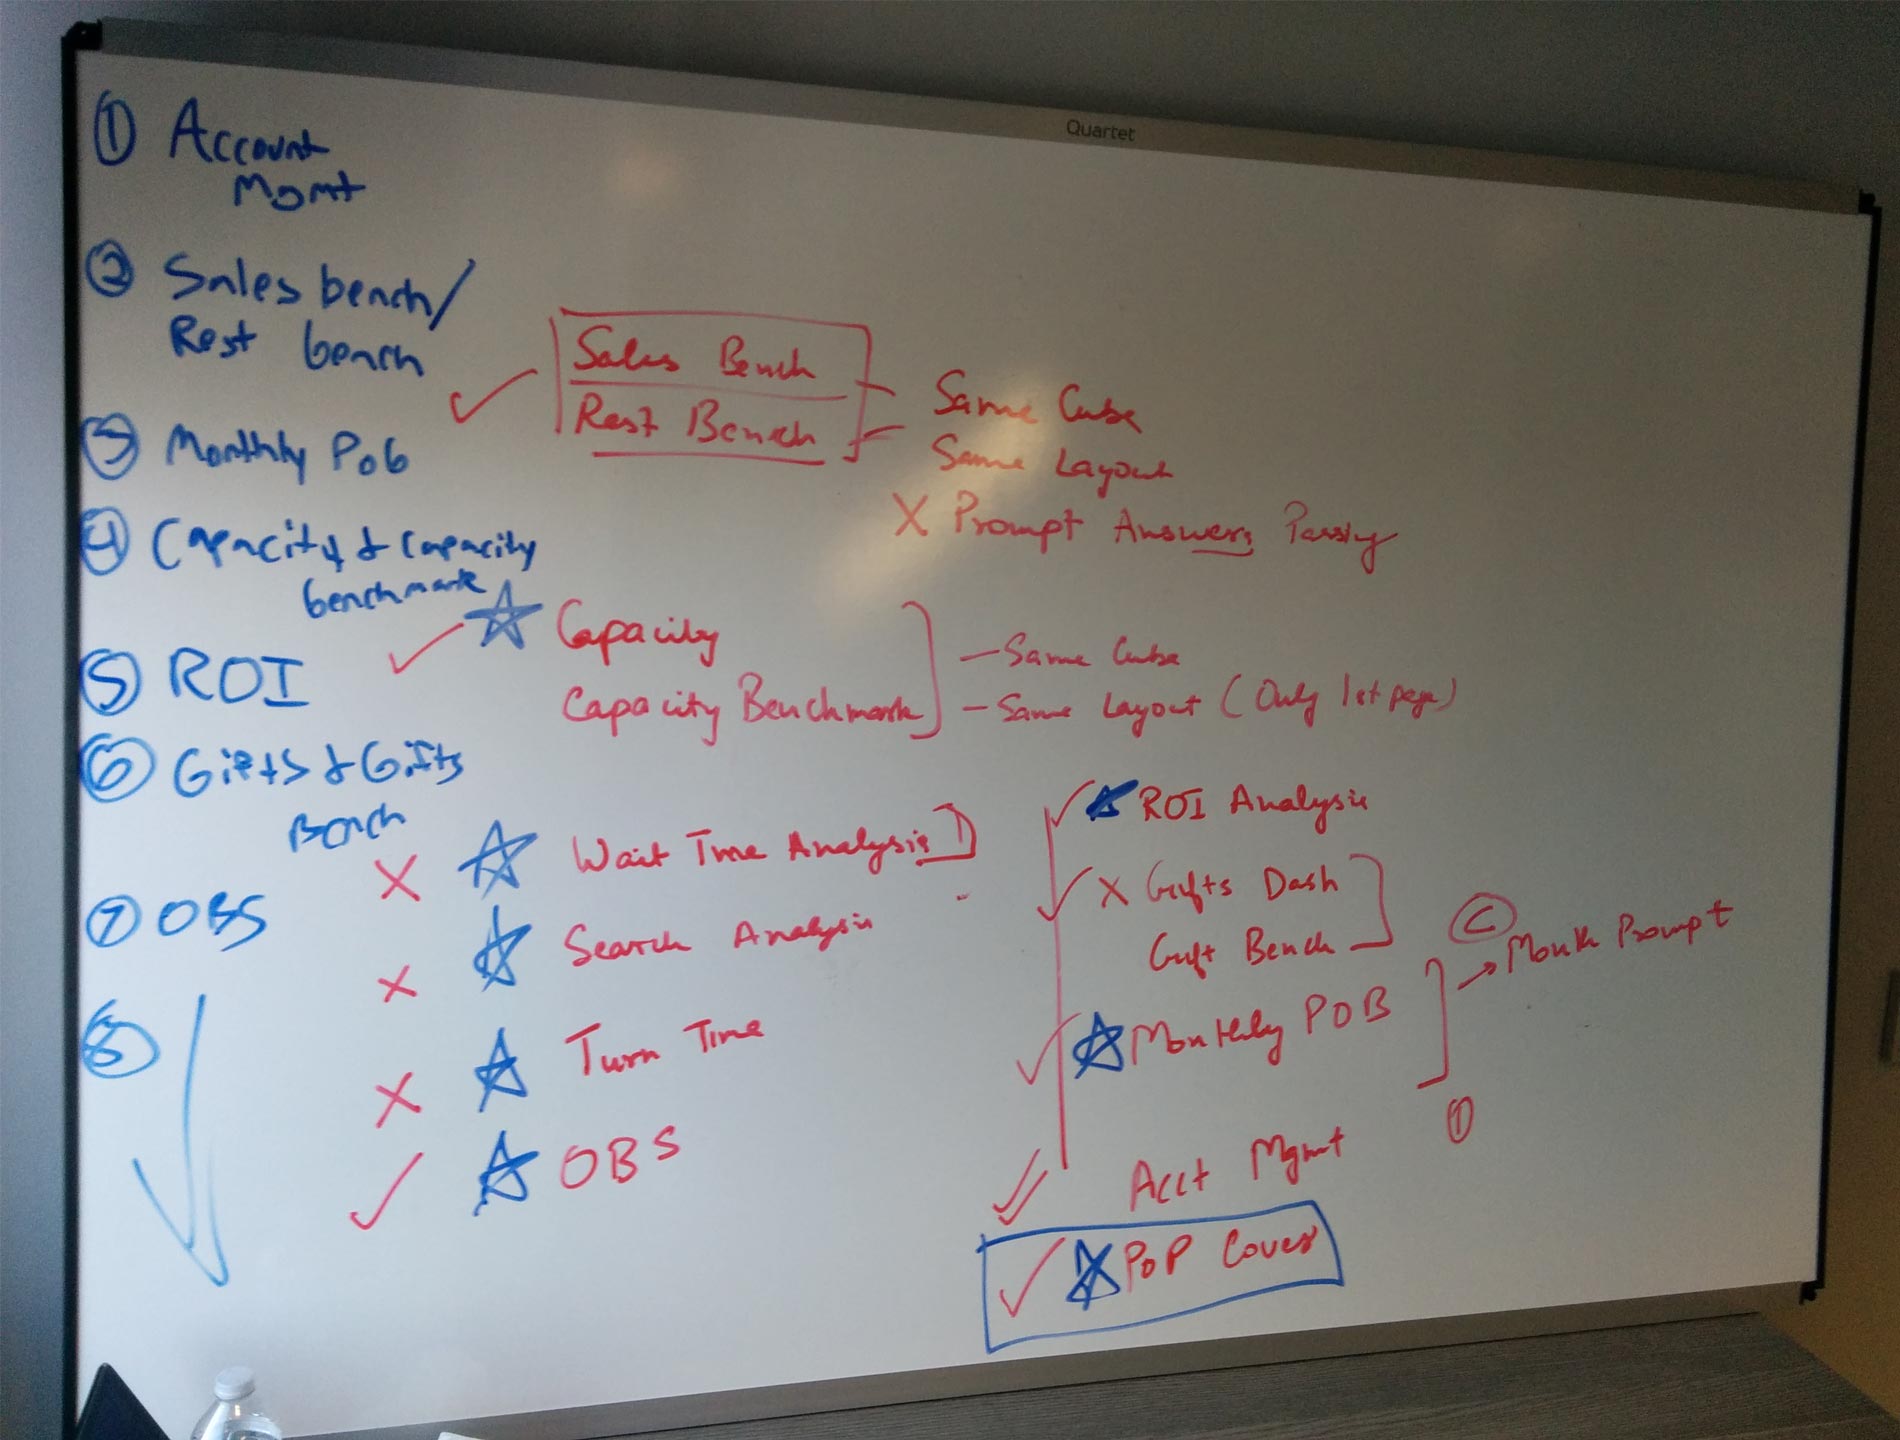 Quartet
① Account
Mgmt
② Sales bench/
Rest bench
③ Monthly Pob
④ Capacity & Capacity
benchmark
⑤ ROI
⑥ Gifts & Gifts
Bench
⑦ OBS
⑧
Sales Bench
Rest Bench
Same Cube
Same Layout
X Prompt Answers Passing
Capacity
Capacity Benchmark
- Same Cube
- Same Layout (Only 1st page)
X Wait Time Analysis
X Search Analysis
X Turn Time
OBS
ROI Analysis
X Gifts Dash
Gift Bench
Monthly POB
Ⓒ
→ Month Prompt
①
Acct Mgmt
POP Cover